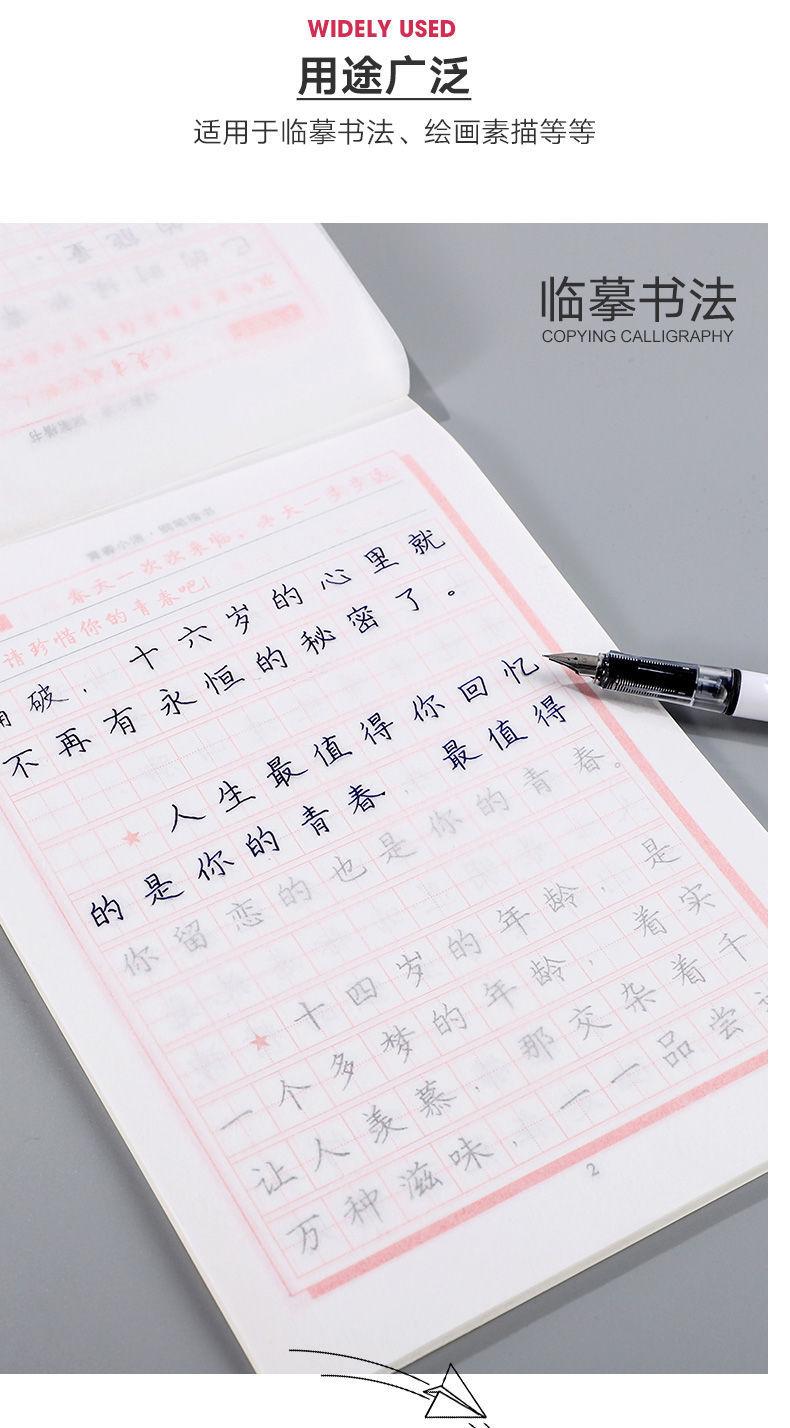 WIDELY USED
用途广泛
适用于临摹书法、绘画素描等等
临摹书法
COPYING CALLIGRAPHY
青春小语·钢笔楷书
春天一次次来临，冬天一步步远
请珍惜你的青春吧！
破，十六岁的心里就
不再有永恒的秘密了。
★人生最值得你回忆
的是你的青春，最值得
你留恋的也是你的青春。
★十四岁的年龄，是
一个多梦的年龄，着实
让人羡慕，那交杂着千
万种滋味，一一品尝
2